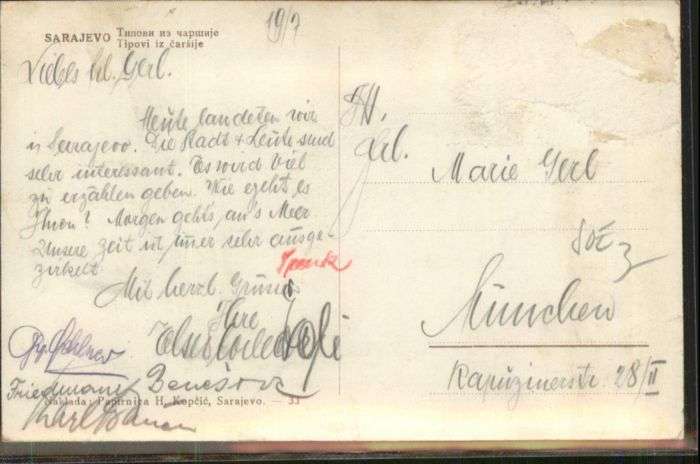 19/7
SARAJEVO Типови из чаршије
Tipovi iz čaršije
Liebes Frl. Gerl.
Heute landeten wir
in Serajevo. Die Stadt & Leute sind
sehr interessant. Es wird viel
zu erzählen geben. Wie geht es
Ihnen? Morgen geht's an's Meer
Unsere Zeit ist immer sehr ausge-
zirkelt
Mit herzl. Grüssen
Ihre
Else
Friedmann Benešova
Karl
Naklada: Papirnica H. Kopčić, Sarajevo. — 33
Frl.
Marie Gerl
München
Kapuzinerstr. 28/II